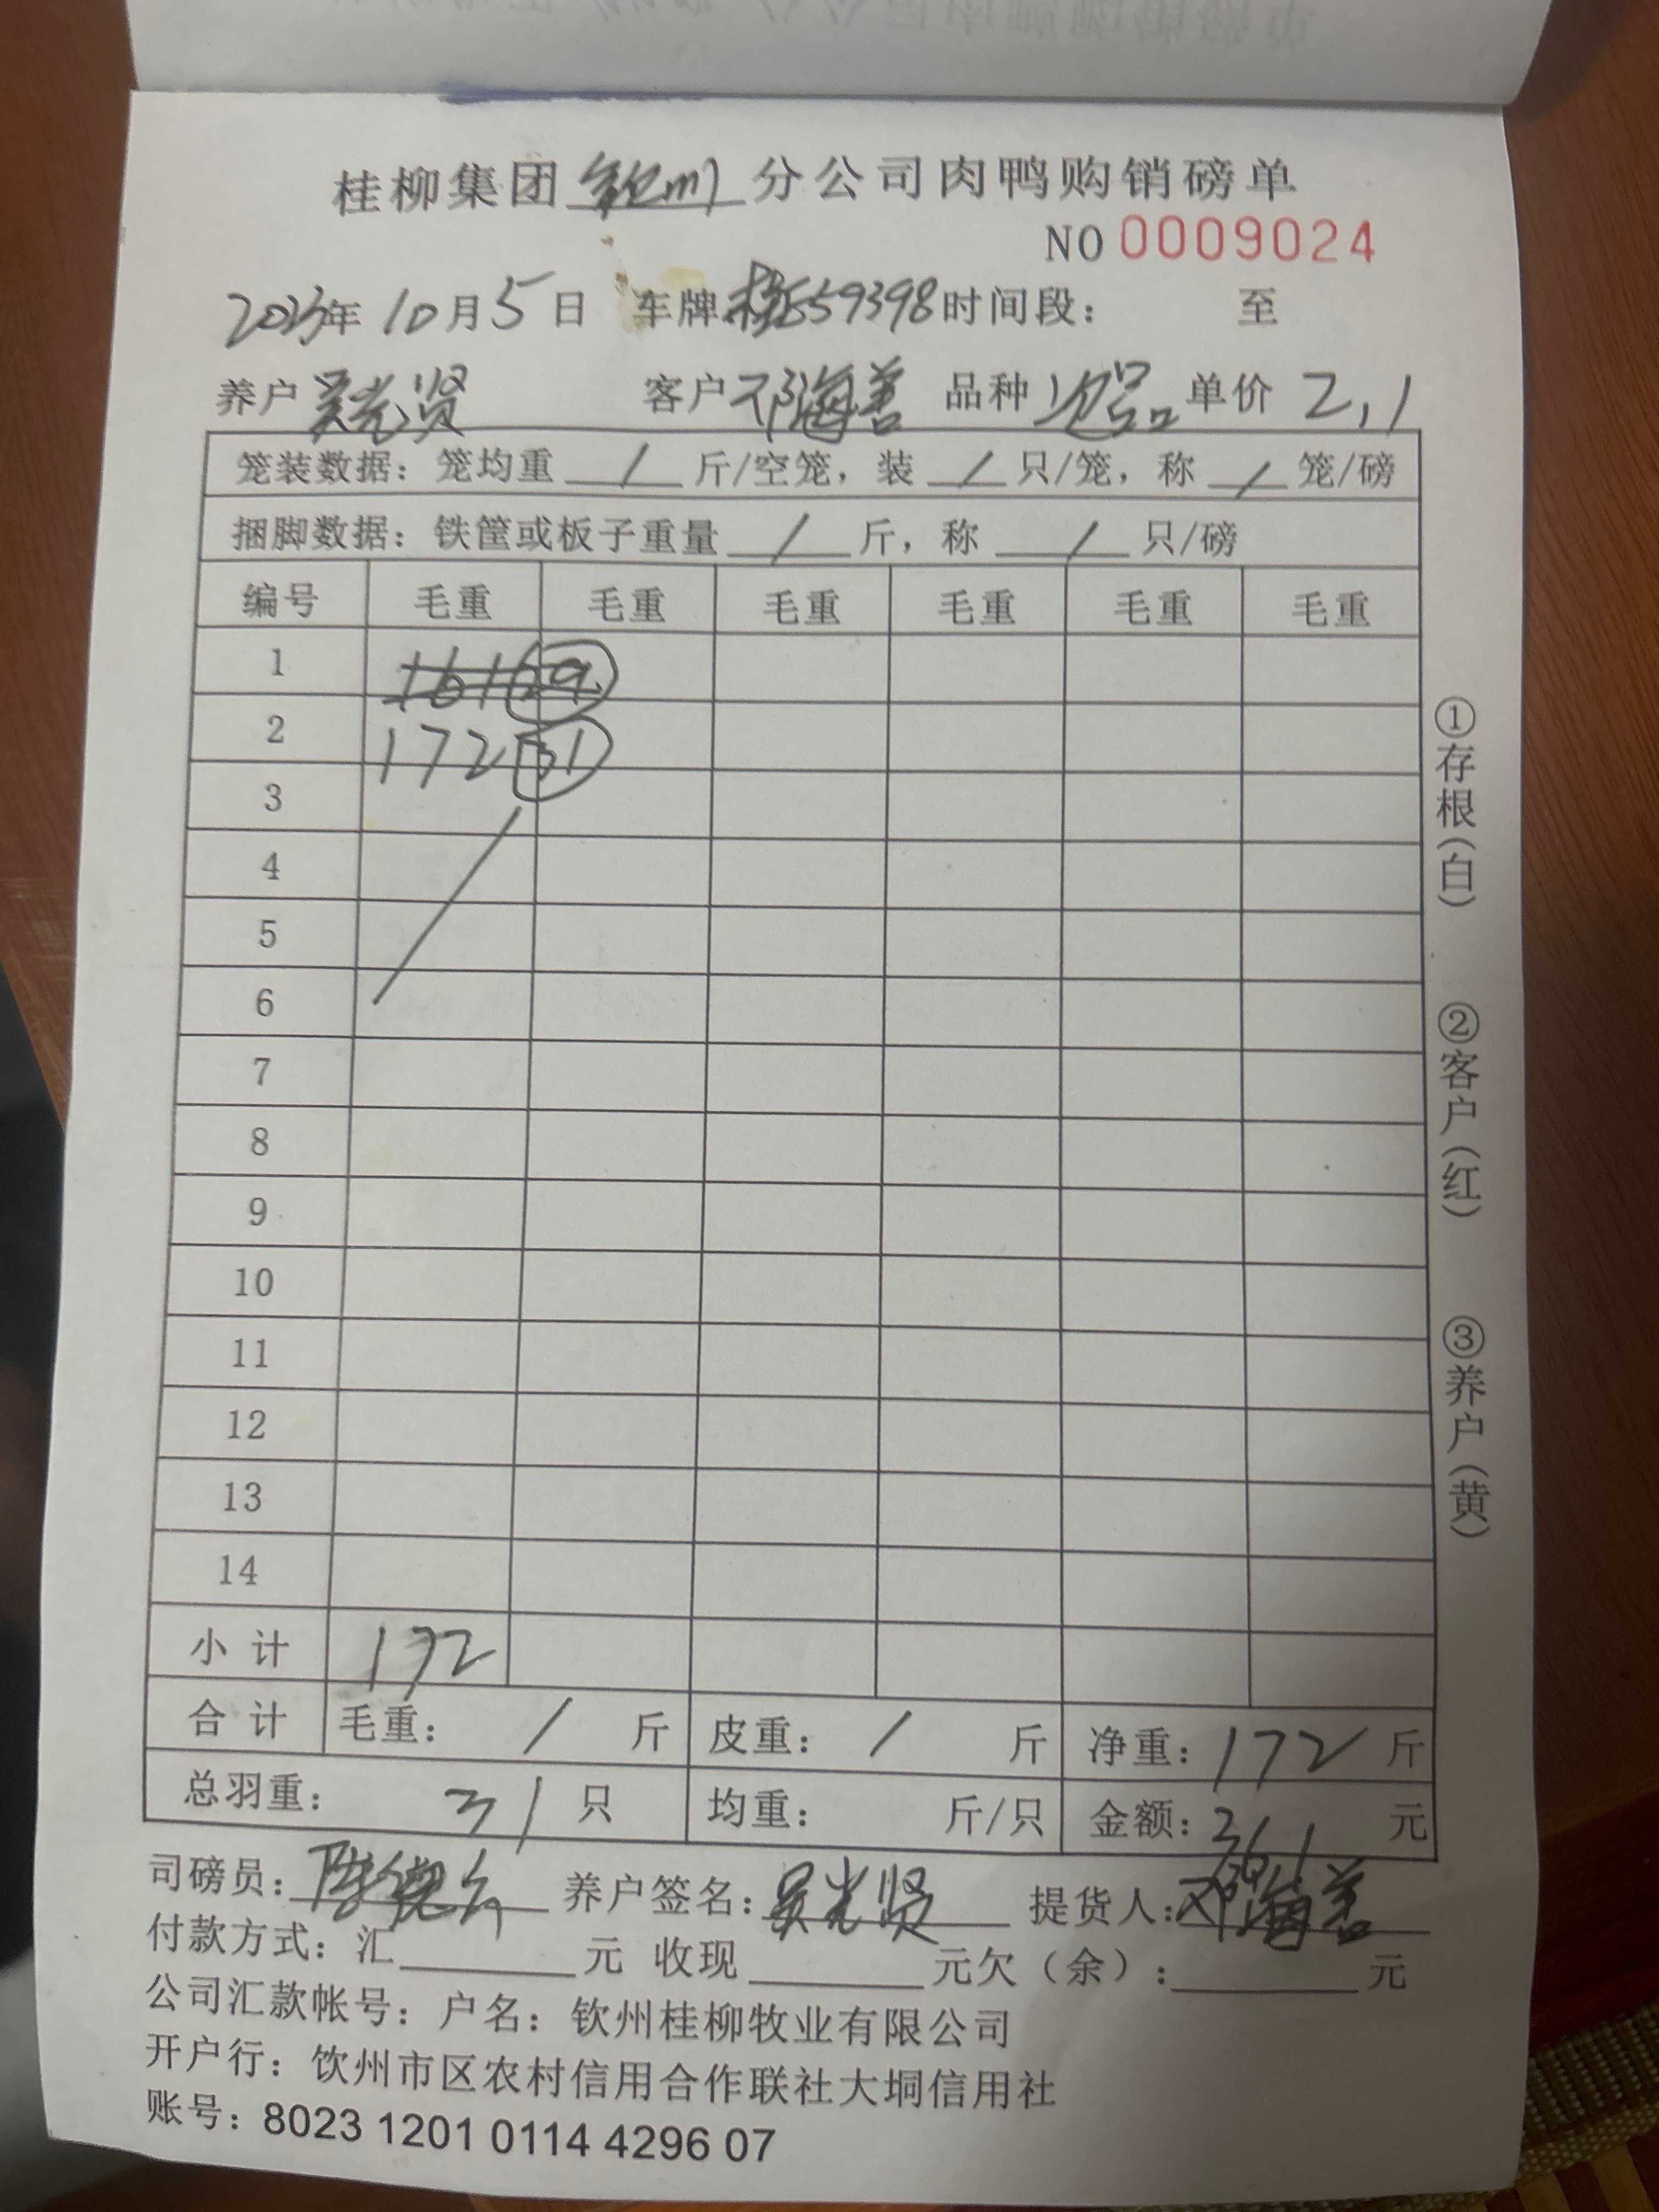 桂柳集团 钦州 分公司肉鸭购销磅单
NO 0009024
2023年 10月 5日 车牌 桂E59398 时间段： 至
养户 吴光贤 客户 邓海善 品种 次品 单价 2,1
笼装数据：笼均重 / 斤/空笼，装 / 只/笼，称 / 笼/磅
捆脚数据：铁筐或板子重量 / 斤，称 / 只/磅
编号 毛重 毛重 毛重 毛重 毛重 毛重
1 161 29
2 172 31
3
4
5
6
7
8
9
10
11
12
13
14
小 计 172
合 计 毛重： / 斤 皮重： / 斤 净重：172 斤
总羽重： 31 只 均重： 斤/只 金额：361 元
司磅员： 养户签名：吴光贤 提货人：邓海善
付款方式：汇 元 收现 元欠（余）： 元
公司汇款帐号：户名：钦州桂柳牧业有限公司
开户行：饮州市区农村信用合作联社大垌信用社
账号：8023 1201 0114 4296 07
①存根（白）
②客户（红）
③养户（黄）